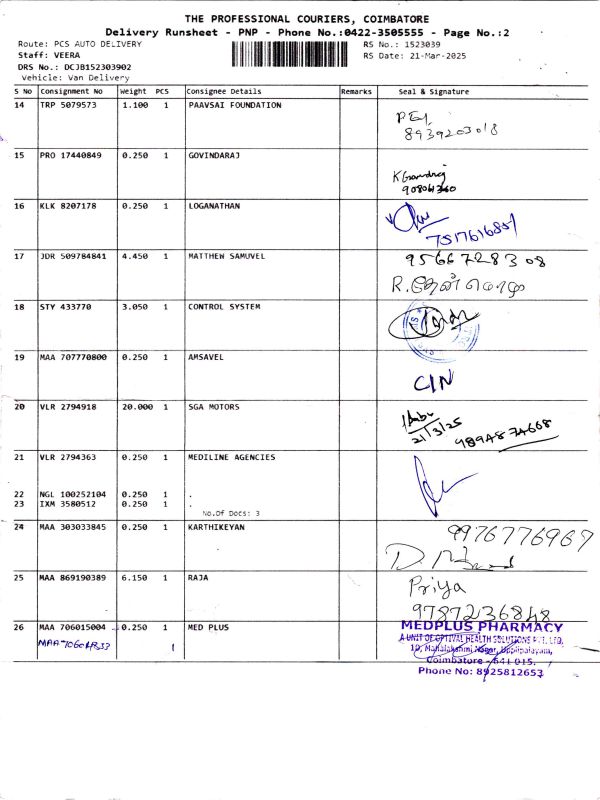 THE PROFESSIONAL COURIERS, COIMBATORE
Delivery Runsheet - PNP - Phone No.:0422-3505555 - Page No.:2
Route: PCS AUTO DELIVERY RS No.: 1523039
Staff: VEERA RS Date: 21-Mar-2025
DRS No.: DCJB152303902
Vehicle: Van Delivery
S No Consignment No Weight PCS Consignee Details Remarks Seal & Signature
14 TRP 5079573 1.100 1 PAAVSAI FOUNDATION
8939203018
15 PRO 17440849 0.250 1 GOVINDARAJ
16 KLK 8207178 0.250 1 LOGANATHAN
17 JDR 509784841 4.450 1 MATTHEW SAMUVEL 9566728308
R. தேன்மொழி
18 STY 433770 3.050 1 CONTROL SYSTEM
19 MAA 707770800 0.250 1 AMSAVEL
C/N
20 VLR 2794918 20.000 1 SGA MOTORS
Babu
21/3/25 9894874668
21 VLR 2794363 0.250 1 MEDILINE AGENCIES
22 NGL 100252104 0.250 1 .
23 IXM 3580512 0.250 1 .
No.Of Docs: 3
24 MAA 303033845 0.250 1 KARTHIKEYAN 9976776967
25 MAA 869190389 6.150 1 RAJA Priya
9787236848
26 MAA 706015004 0.250 1 MED PLUS MEDPLUS PHARMACY
1 A UNIT OF OPTIVAL HEALTH SOLUTIONS PVT. LTD.
10, Mahalakshmi Nagar, Uppilipalayam,
Coimbatore - 641 015.
Phone No: 8925812653